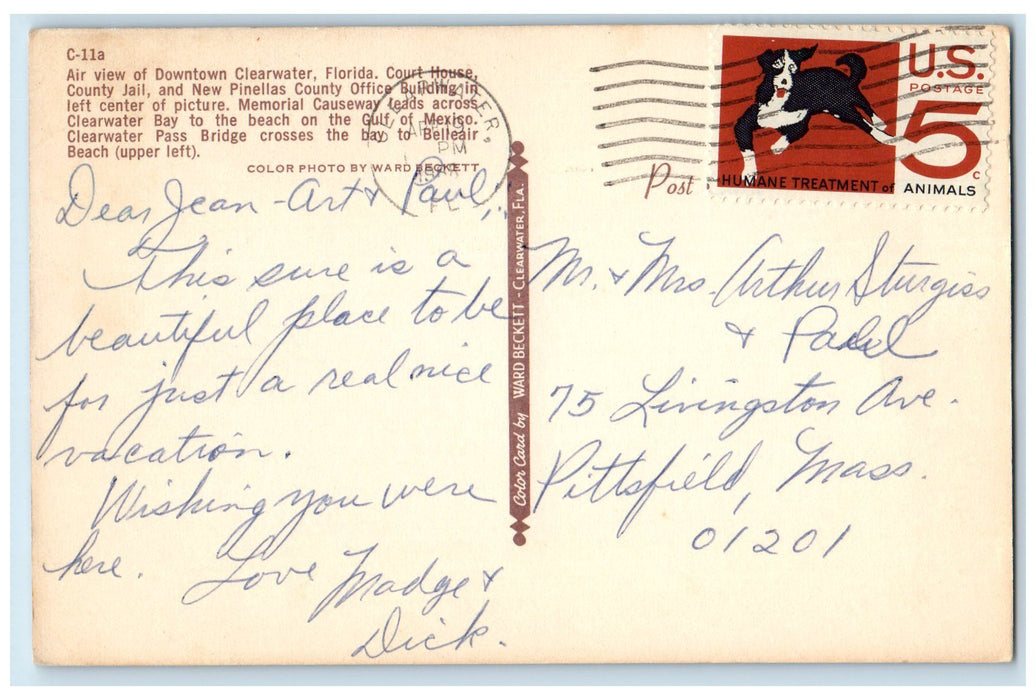 C-11a
Air view of Downtown Clearwater, Florida. Court House,
County Jail, and New Pinellas County Office Building in
left center of picture. Memorial Causeway leads across
Clearwater Bay to the beach on the Gulf of Mexico.
Clearwater Pass Bridge crosses the bay to Belleair
Beach (upper left).
COLOR PHOTO BY WARD BECKETT
Dear Jean - Art & Paul,
This sure is a
beautiful place to be
for just a real nice
vacation.
Wishing you were
here. Love Madge &
Dick.
Color Card by WARD BECKETT - CLEARWATER, FLA.
PM
Post
U.S.
POSTAGE
5c
HUMANE TREATMENT of ANIMALS
Mr. & Mrs. Arthur Sturgiss
& Paul
75 Livingston Ave.
Pittsfield, Mass.
01201